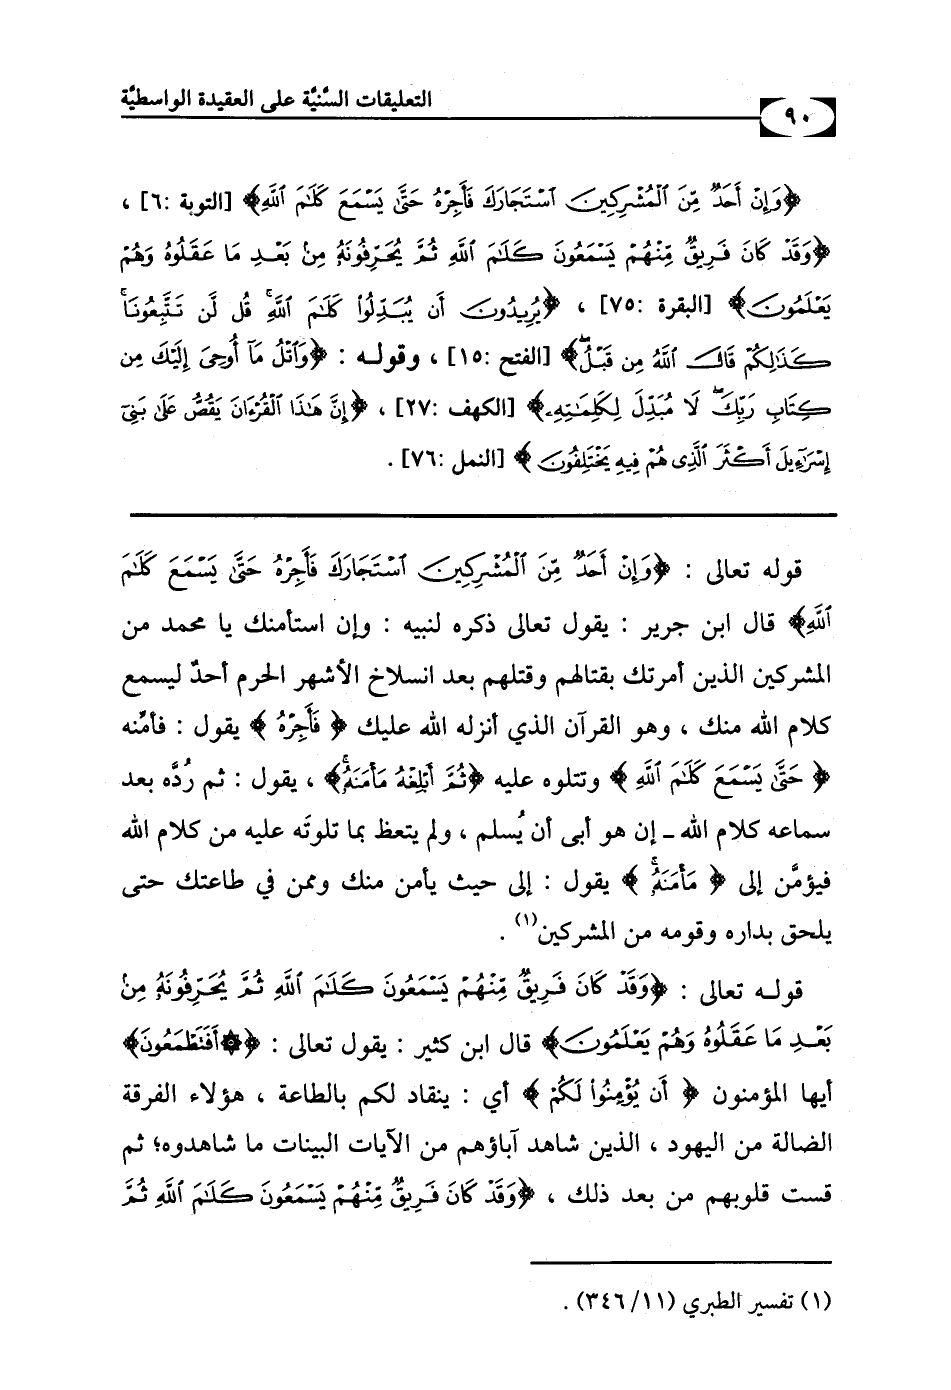 التعليقات السَّنيَّة على العقيدة الواسطيَّة
٩٠
﴿وَإِنْ أَحَدٌ مِّنَ الْمُشْرِكِينَ اسْتَجَارَكَ فَأَجِرْهُ حَتَّىٰ يَسْمَعَ كَلَٰمَ اللَّهِ﴾ [التوبة :٦] ،
﴿وَقَدْ كَانَ فَرِيقٌ مِّنْهُمْ يَسْمَعُونَ كَلَٰمَ اللَّهِ ثُمَّ يُحَرِّفُونَهُۥ مِنۢ بَعْدِ مَا عَقَلُوهُ وَهُمْ
يَعْلَمُونَ﴾ [البقرة :٧٥] ، ﴿يُرِيدُونَ أَن يُبَدِّلُوا۟ كَلَٰمَ اللَّهِ ۚ قُل لَّن تَتَّبِعُونَا ۚ
كَذَٰلِكُمْ قَالَ اللَّهُ مِن قَبْلُ ۖ﴾ [الفتح :١٥] ، وقوله : ﴿وَاتْلُ مَآ أُوحِىَ إِلَيْكَ مِن
كِتَابِ رَبِّكَ ۖ لَا مُبَدِّلَ لِكَلِمَٰتِهِۦ﴾ [الكهف :٢٧] ، ﴿إِنَّ هَٰذَا الْقُرْءَانَ يَقُصُّ عَلَىٰ بَنِىٓ
إِسْرَٰٓءِيلَ أَكْثَرَ الَّذِى هُمْ فِيهِ يَخْتَلِفُونَ ﴾ [النمل :٧٦] .
قوله تعالى : ﴿وَإِنْ أَحَدٌ مِّنَ الْمُشْرِكِينَ اسْتَجَارَكَ فَأَجِرْهُ حَتَّىٰ يَسْمَعَ كَلَٰمَ
اللَّهِ﴾ قال ابن جرير : يقول تعالى ذكره لنبيه : وإن استأمنك يا محمد من
المشركين الذين أمرتك بقتالهم وقتلهم بعد انسلاخ الأشهر الحرم أحدٌ ليسمع
كلام الله منك ، وهو القرآن الذي أنزله الله عليك ﴿ فَأَجِرْهُ ﴾ يقول : فأمِّنه
﴿ حَتَّىٰ يَسْمَعَ كَلَٰمَ اللَّهِ ﴾ وتتلوه عليه ﴿ثُمَّ أَبْلِغْهُ مَأْمَنَهُۥ ۚ﴾ ، يقول : ثم رُدَّه بعد
سماعه كلام الله ـ إن هو أبى أن يُسلم ، ولم يتعظ بما تلوتَه عليه من كلام الله
فيؤمَّن إلى ﴿ مَأْمَنَهُۥ ۚ ﴾ يقول : إلى حيث يأمن منك وممن في طاعتك حتى
يلحق بداره وقومه من المشركين(١) .
قوله تعالى : ﴿وَقَدْ كَانَ فَرِيقٌ مِّنْهُمْ يَسْمَعُونَ كَلَٰمَ اللَّهِ ثُمَّ يُحَرِّفُونَهُۥ مِنۢ
بَعْدِ مَا عَقَلُوهُ وَهُمْ يَعْلَمُونَ﴾ قال ابن كثير : يقول تعالى : ﴿۞أَفَتَطْمَعُونَ﴾
أيها المؤمنون ﴿ أَن يُؤْمِنُوا۟ لَكُمْ ﴾ أي : ينقاد لكم بالطاعة ، هؤلاء الفرقة
الضالة من اليهود ، الذين شاهد آباؤهم من الآيات البينات ما شاهدوه؛ ثم
قست قلوبهم من بعد ذلك ، ﴿وَقَدْ كَانَ فَرِيقٌ مِّنْهُمْ يَسْمَعُونَ كَلَٰمَ اللَّهِ ثُمَّ
(١) تفسير الطبري (٣٤٦/١١) .